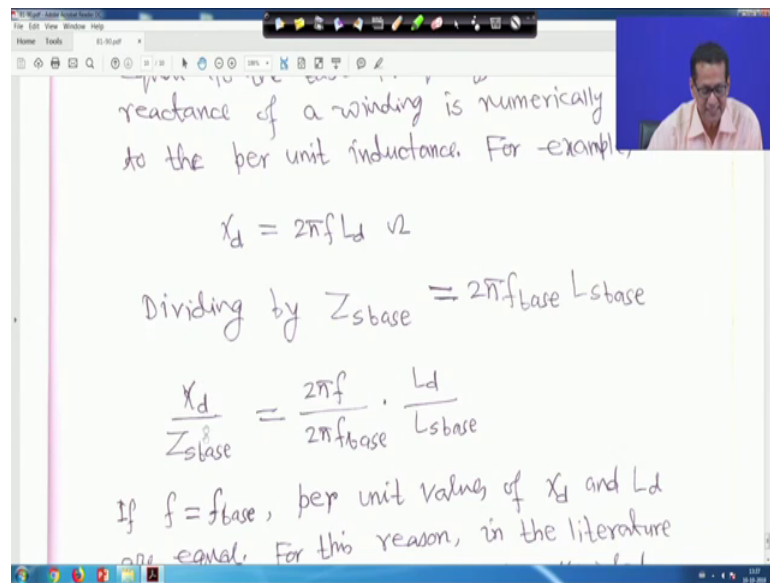 81-90.pdf - Adobe Acrobat Reader DC
File Edit View Window Help
Home Tools 81-90.pdf ×
reactance of a winding is numerically
to the per unit inductance. For example,
Xd = 2πf Ld Ω
Dividing by Zsbase = 2πfbase Lsbase
Xd / Zsbase = 2πf / 2πfbase · Ld / Lsbase
If f = fbase, per unit values of Xd and Ld
are equal. For this reason, in the literature